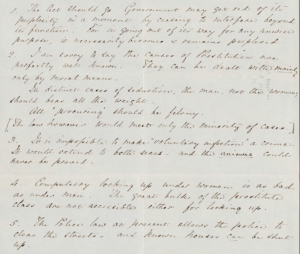 1. The last should go Government may get rid of its
perplexity in a moment by ceasing to interfere beyond
its function. For in going out of its way for any unwise
purpose, it necessarily becomes & remains perplexed.
2. I am sorry to say the causes of Prostitution are
perfectly well known. They can be dealt with mainly
only by moral means.
In distinct cases of seduction, the man, not the woman
should bear all the weight.
All "procuring" should be felony.
[This however would meet only the minority of cases]
3. It is impossible to make voluntary infection a crime.
It would extend to both sexes. and the animus could
never be proved.
4. Compulsory locking up under woman is as bad
as under man. The great bulk of the prostitute
class are not accessible either for locking up.
5. The Police law as present allows the police to
clear the streets & and known houses can be shut
up.